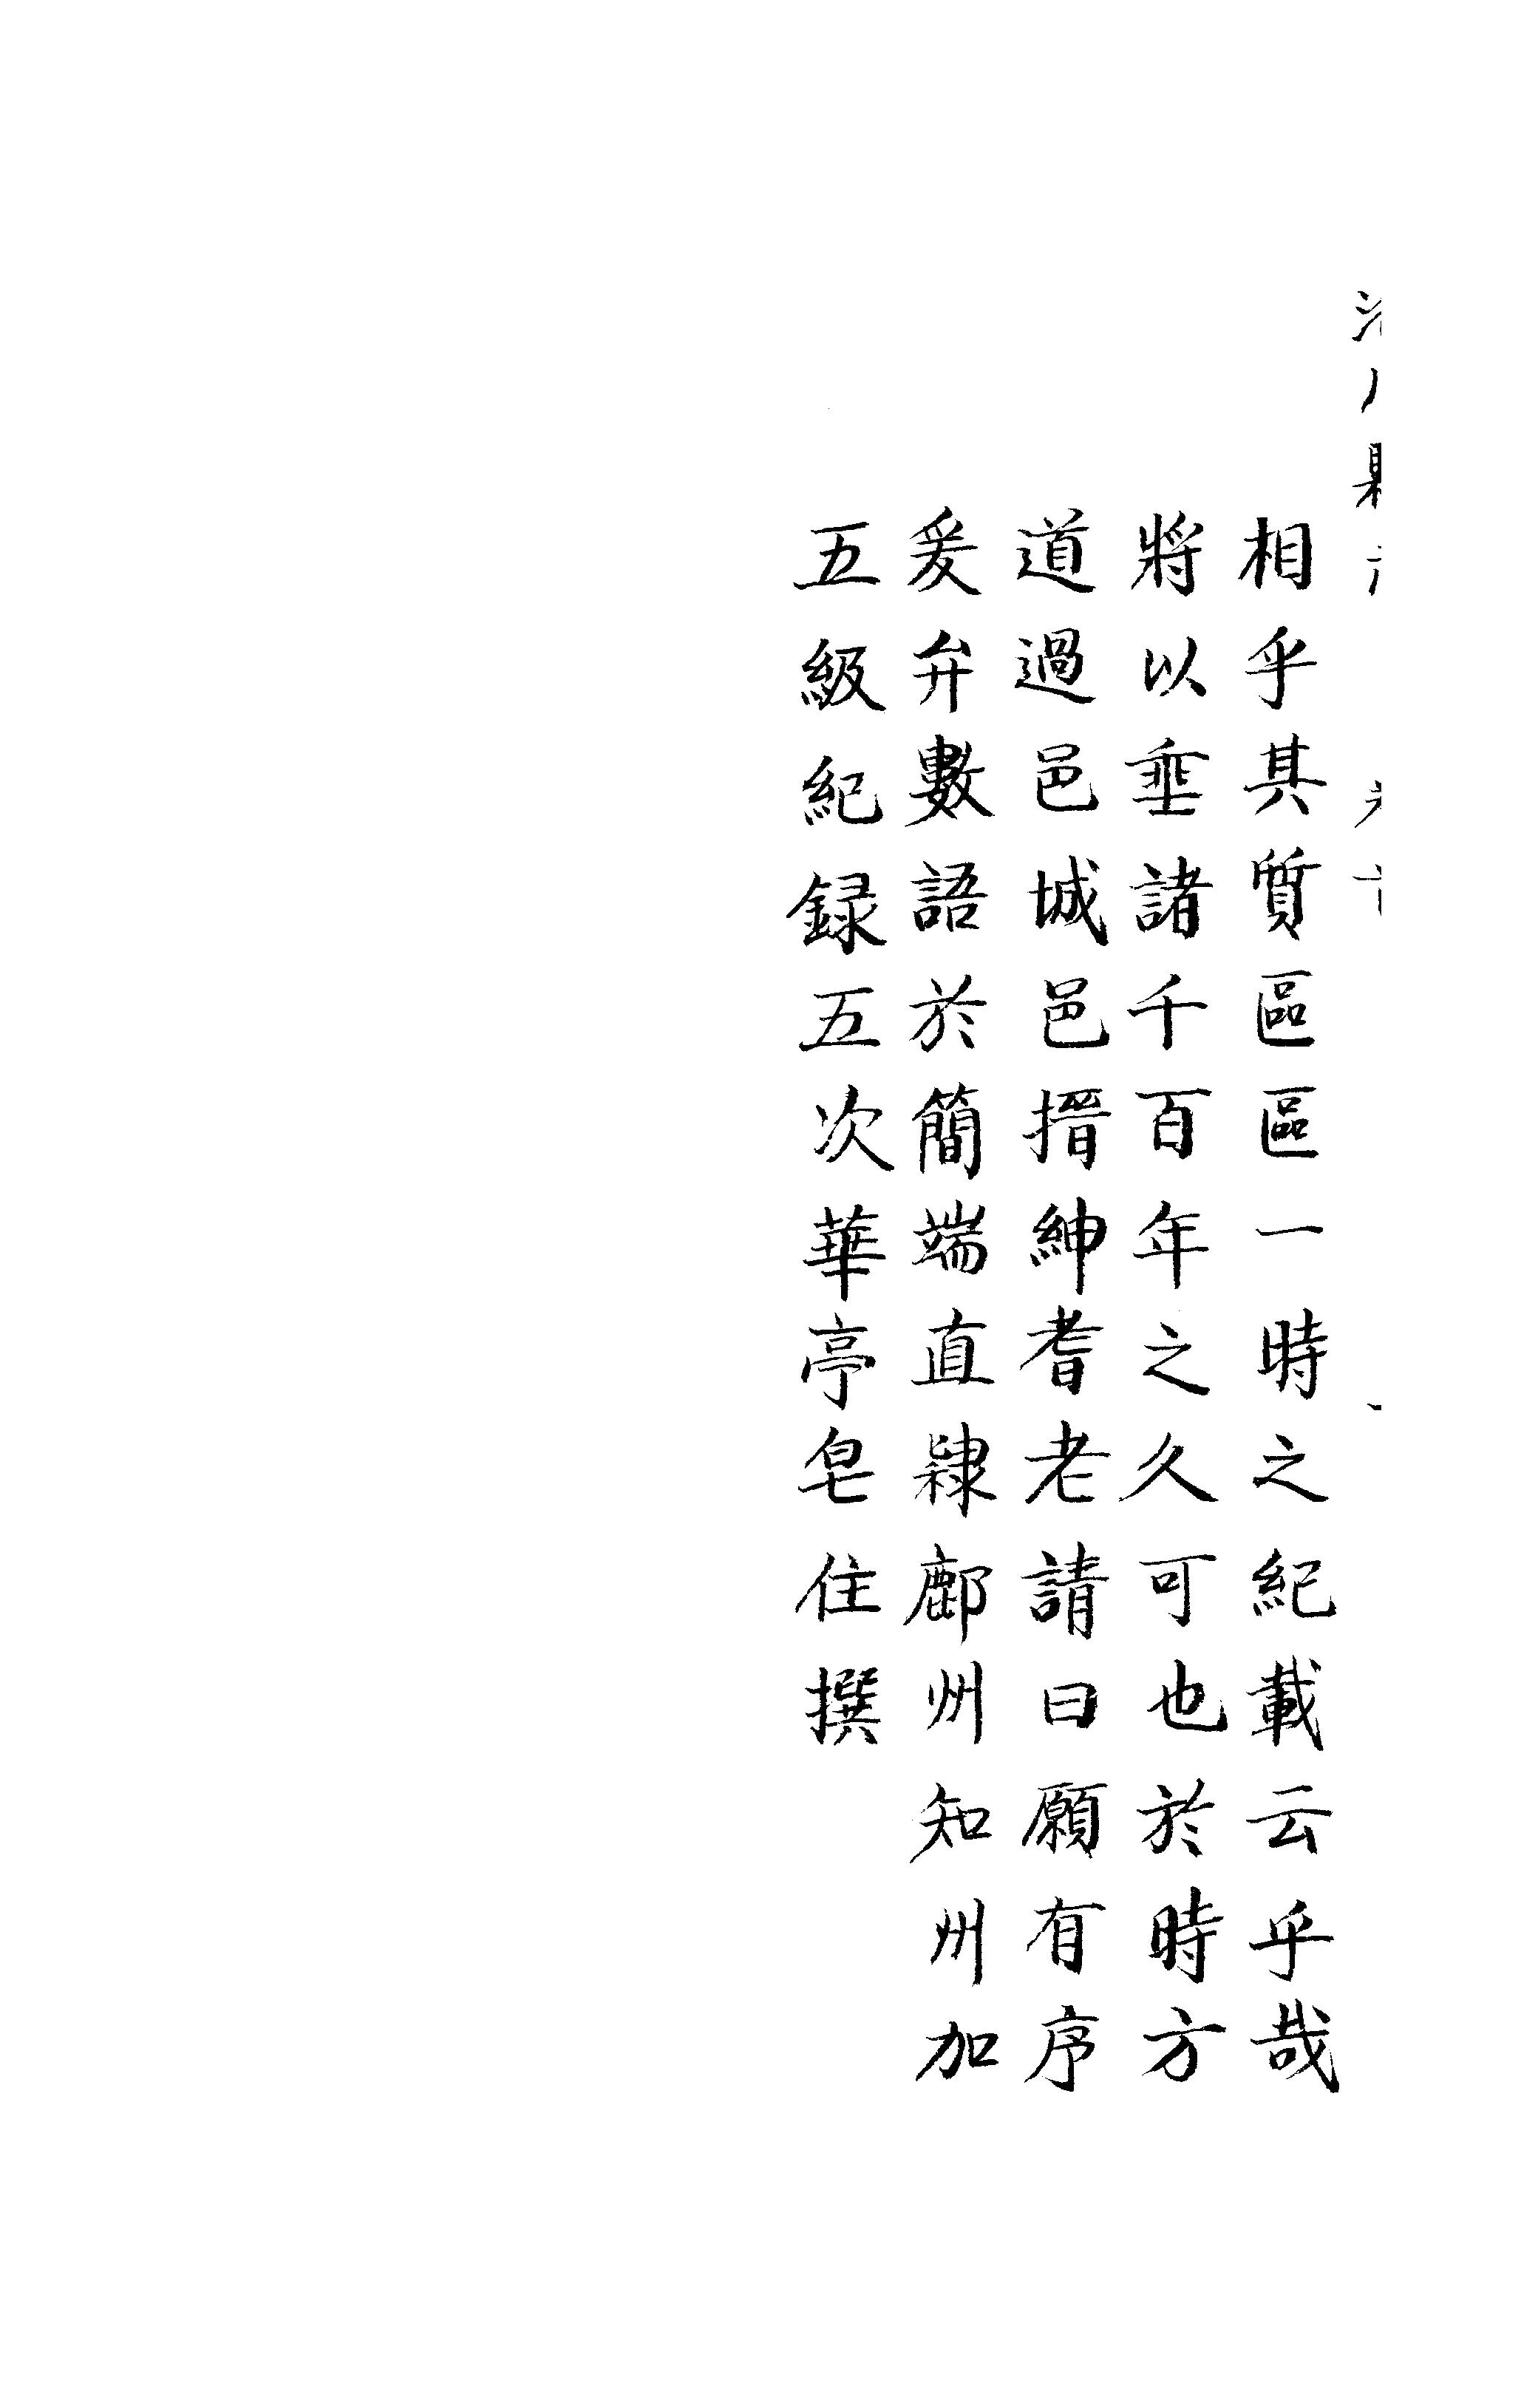 相乎其質區區一時之紀載云乎哉
將以垂諸千百年之久可也於時方
道過邑城邑搢紳耆老請曰願有序
爰弁數語於簡端直隸鄜州知州加
五級紀録五次華亭皂住撰